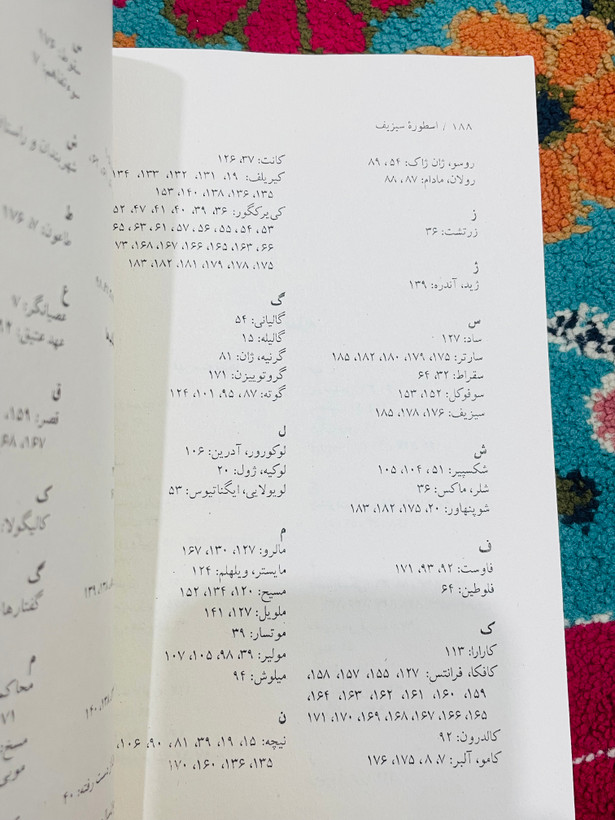 ۱۸۸ / اسطورهٔ سیزیف
روسو، ژان ژاک: ۵۴، ۸۹
رولان، مادام: ۸۷، ۸۸
ز
زرتشت: ۳۶
ژ
ژید، آندره: ۱۳۹
س
ساد: ۱۲۷
سارتر: ۱۷۵، ۱۷۹، ۱۸۰، ۱۸۲، ۱۸۵
سقراط: ۳۲، ۶۴
سوفوکل: ۱۵۲، ۱۵۳
سیزیف: ۱۷۶، ۱۷۸، ۱۸۵
ش
شکسپیر: ۵۱، ۱۰۴، ۱۰۵
شلر، ماکس: ۳۶
شوپنهاور: ۲۰، ۱۷۵، ۱۸۲، ۱۸۳
ف
فاوست: ۹۲، ۹۳، ۱۷۱
فلوطین: ۶۴
ک
کارارا: ۱۱۳
کافکا، فرانتس: ۱۲۷، ۱۵۵، ۱۵۷، ۱۵۸،
۱۵۹، ۱۶۰، ۱۶۱، ۱۶۲، ۱۶۳، ۱۶۴،
۱۶۵، ۱۶۶، ۱۶۷، ۱۶۸، ۱۶۹، ۱۷۰، ۱۷۱
کالدرون: ۹۲
کامو، آلبر: ۷، ۸، ۱۷۵، ۱۷۶
کانت: ۳۷، ۱۲۶
کیریلف: ۱۹، ۱۳۱، ۱۳۲، ۱۳۳، ۱۳۴
۱۳۵، ۱۳۶، ۱۳۸، ۱۴۰، ۱۵۳
کی‌یرکگور: ۳۶، ۳۹، ۴۰، ۴۱، ۴۷، ۵۲
۵۳، ۵۴، ۵۵، ۵۶، ۵۷، ۶۱، ۶۳، ۶۵
۶۶، ۱۶۳، ۱۶۵، ۱۶۶، ۱۶۷، ۱۶۸،
۱۷۵، ۱۷۸، ۱۷۹، ۱۸۱، ۱۸۲، ۱۸۳
گ
گالیانی: ۵۴
گالیله: ۱۵
گرنیه، ژان: ۸۱
گروتویزن: ۱۷۱
گوته: ۸۷، ۹۵، ۱۰۱، ۱۲۴
ل
لوکورور، آدرین: ۱۰۶
لوکیه، ژول: ۲۰
لویولایی، ایگناتیوس: ۵۳
م
مالرو: ۱۲۷، ۱۳۰، ۱۶۷
مایستر، ویلهلم: ۱۲۴
مسیح: ۱۲۰، ۱۳۴، ۱۵۲
ملویل: ۱۲۷، ۱۴۱
موتسار: ۳۹
مولیر: ۳۹، ۹۸، ۱۰۵، ۱۰۷
میلوش: ۹۴
ن
نیچه: ۱۵، ۱۹، ۳۹، ۸۱، ۹۰، ۱۰۶،
۱۳۵، ۱۳۶، ۱۶۰، ۱۷۰
ش
شهربندان و
ط
ع
عصیانگر: ۷
عهد عتیق:
ق
قصر: ۱۵۹،
ک
کالیگولا:
گ
گفتارها
م